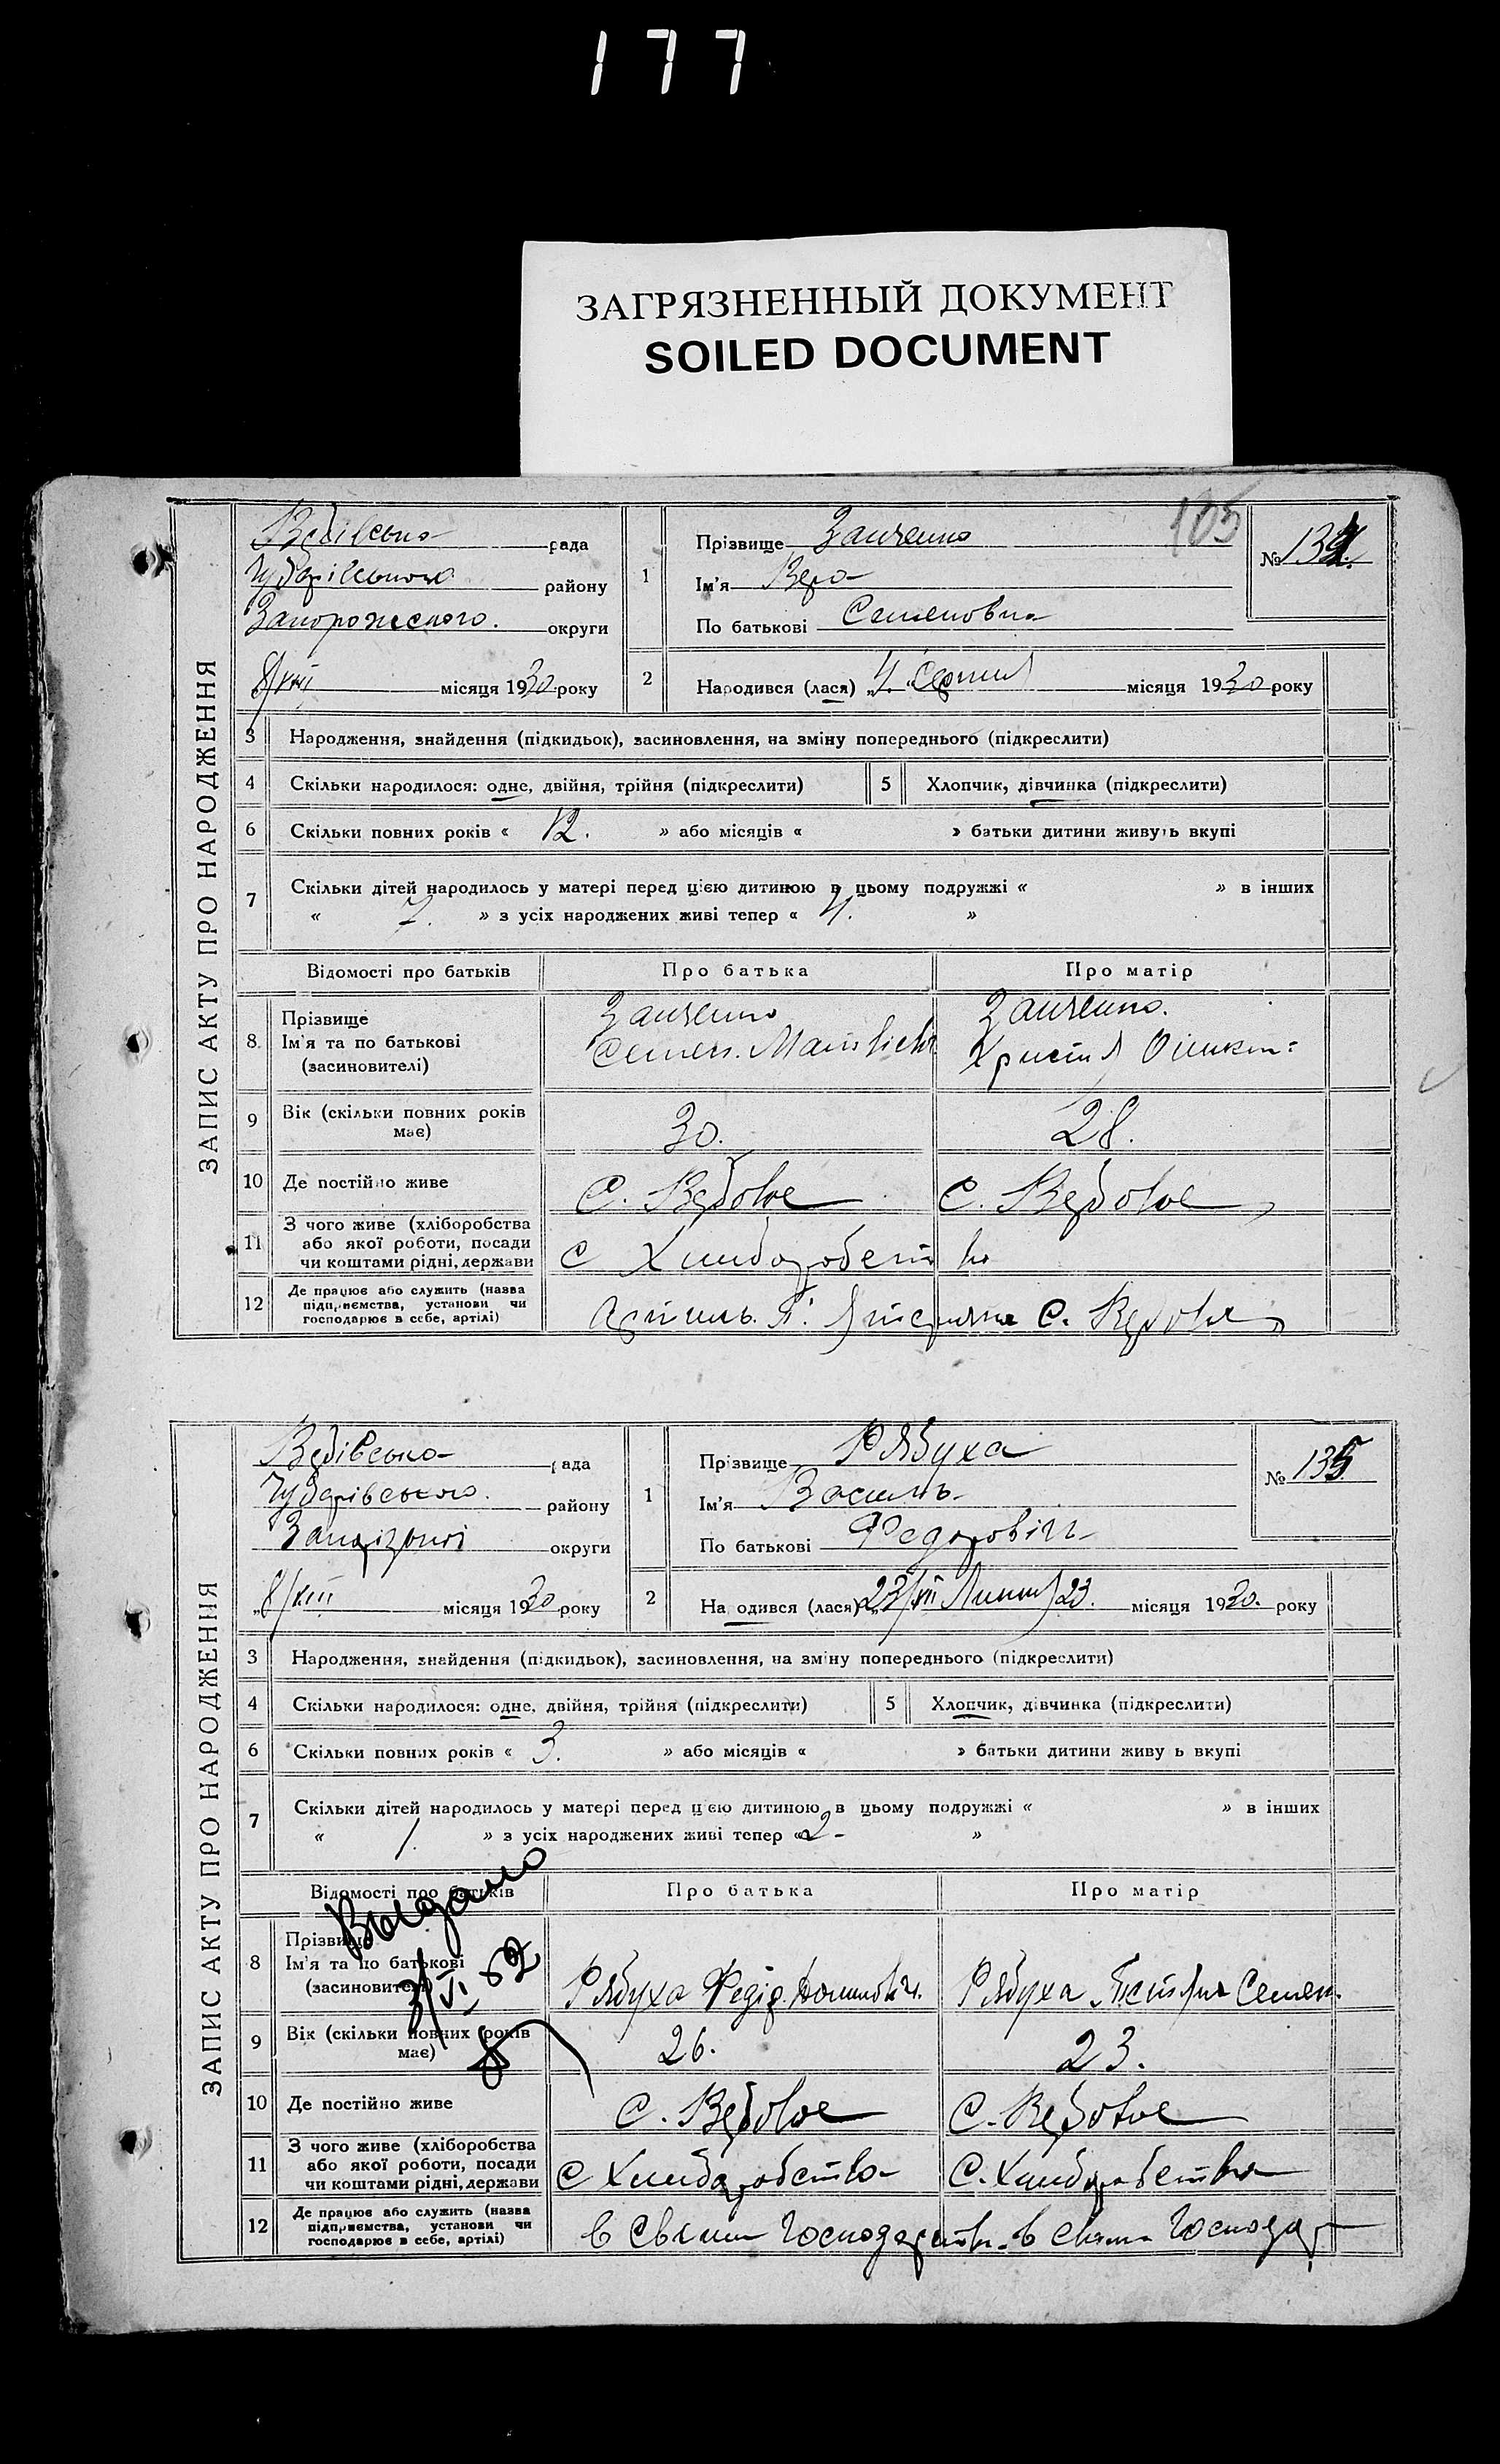 177
ЗАГРЯЗНЕННЫЙ ДОКУМЕНТ
SOILED DOCUMENT
105
ЗАПИС АКТУ ПРО НАРОДЖЕННЯ
рада
Чубарівського району
Запорожского. округи
8/VIII місяця 1930 року
1
Прізвище
Ім'я Вера
По батькові Семеновна
№ 134.
2
Народився (лася) „4. Серпня місяця 1930 року
3 Народження, знайдення (підкидьок), засиновлення, на зміну попереднього (підкреслити)
4 Скільки народилося: одне, двійня, трійня (підкреслити) 5 Хлопчик, дівчинка (підкреслити)
6 Скільки повних років « 12. » або місяців « » батьки дитини живуть вкупі
7 Скільки дітей народилось у матері перед цією дитиною в цьому подружжі « » в інших
« 7. » з усіх народжених живі тепер « 4. »
Відомості про батьків Про батька Про матір
8. Прізвище
Ім'я та по батькові Семен.
(засиновителі)
9 Вік (скільки повних років має) 30. 28.
10 Де постійно живе С. Вербове С. Вербове
11 З чого живе (хліборобства
або якої роботи, посади
чи коштами рідні, держави С
12 Де працює або служить (назва
підприємства, установи чи
господарює в себе, артілі) С. Вербове
ЗАПИС АКТУ ПРО НАРОДЖЕННИЯ
рада
Чубарівського. району
округи
„8/VIII місяця 1930 року
1
Прізвище Рябуха
Ім'я Василь
По батькові Федорович
№ 135
2
Народився (лася) „23/VII Липня 23. місяця 1930. року
3 Народження, знайдення (підкидьок), засиновлення, на зміну попереднього (підкреслити)
4 Скільки народилося: одне, двійня, трійня (підкреслити) 5 Хлопчик, дівчинка (підкреслити)
6 Скільки повних років « 3. » або місяців « » батьки дитини живу ь вкупі
7 Скільки дітей народилось у матері перед цією дитиною в цьому подружжі « » в інших
« 1. » з усіх народжених живі тепер « 2 - »
Відомості про батьків Про батька Про матір
Выдано
3/VI 62
8 Прізвище
Ім'я та по батькові
(засиновителі) Рябуха Федір Рябуха Семен.
9 Вік (скільки повних років має) 26. 23.
10 Де постійно живе С. Вербове С. Вербове
11 З чого живе (хліборобства
або якої роботи, посади
чи коштами рідні, держави С Хлиборобства С. Хлиборобства
12 Де працює або служить (назва
підприємства, установи чи
господарює в себе, артілі) в